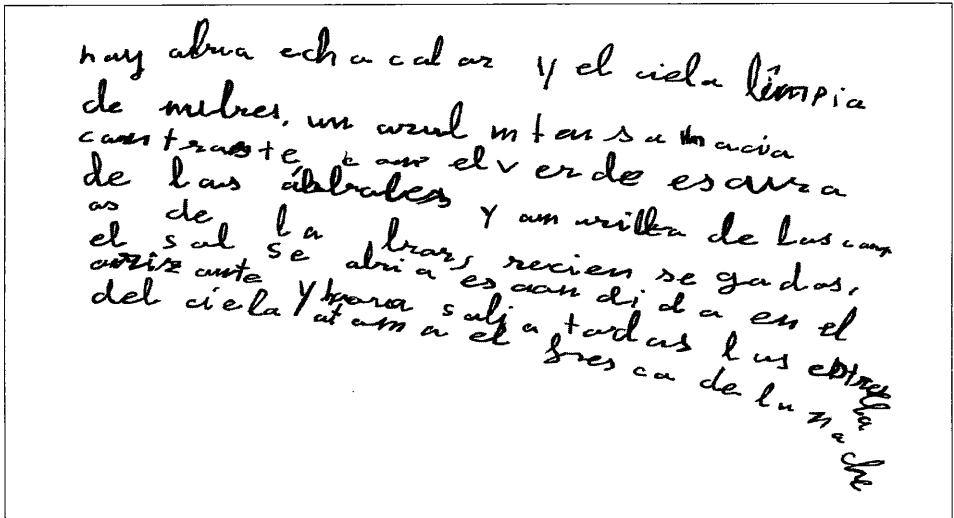 hay abia echa calar y el ciela límpia
de nubres, un azul intensa hacia
cantraste can el verde escura
de las ábbrales y amarilla de las camp
as de la brar, recien segados,
el sal se abria escandida en el
arizante y para salia tardas las estrella
del ciela atama el fresca de la nache